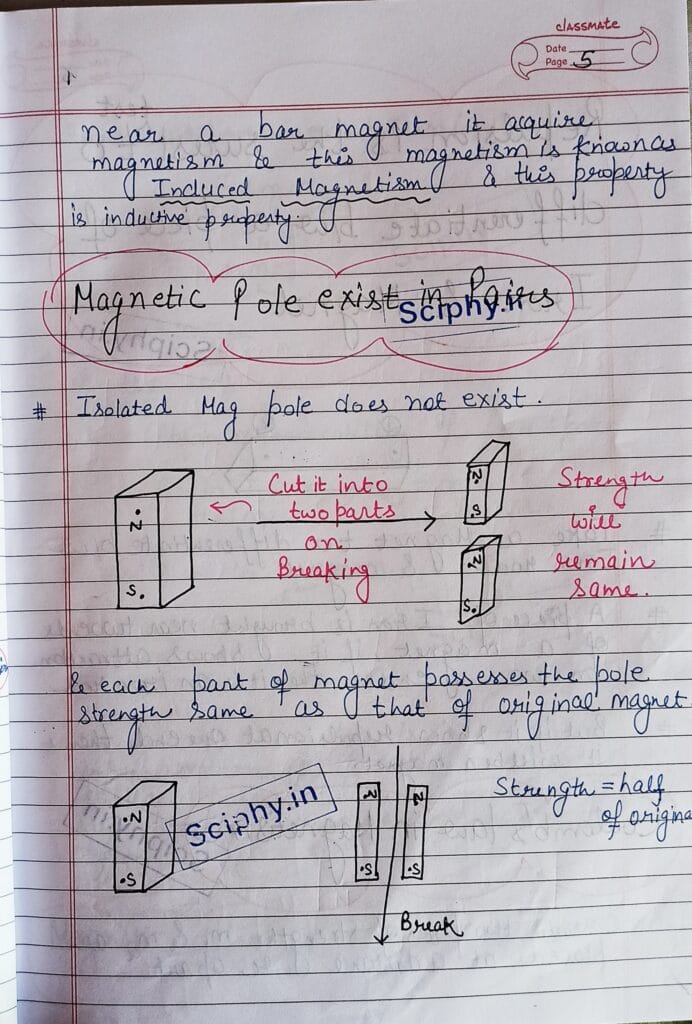 classmate
Date
Page 5
near a bar magnet it acquire
magnetism & this magnetism is known as
Induced Magnetism & this property
is inductive property.
Magnetic Pole exist in Pairs
Sciphy.in
# Isolated Mag pole does not exist.
Cut it into
two parts
on
Breaking
N
S.
N
S
N
S.
Strength
will
remain
same.
& each part of magnet possesses the pole
strength same as that of original magnet
Sciphy.in
.N
.S
N
.S
N
.S
Strength = half
of origina
Break